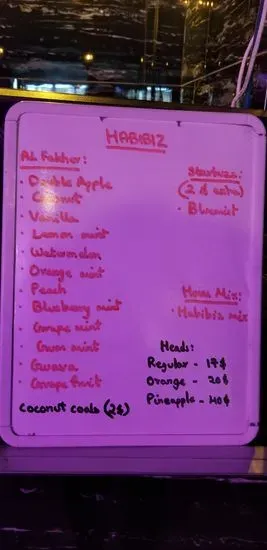 HABIBIZ
AL Fakher:
· Double Apple
· Coconut
· Vanilla
· Lemon mint
· Watermelon
· Orange mint
· Peach
· Blueberry mint
· Grape mint
· Gum mint
· Guava
· Grape fruit
coconut coals (2$)
Starbuzz:
(2$ extra)
· Bluemist
House Mix:
· Habibiz mix
Heads:
Regular - 17$
Orange - 20$
Pineapple - 40$